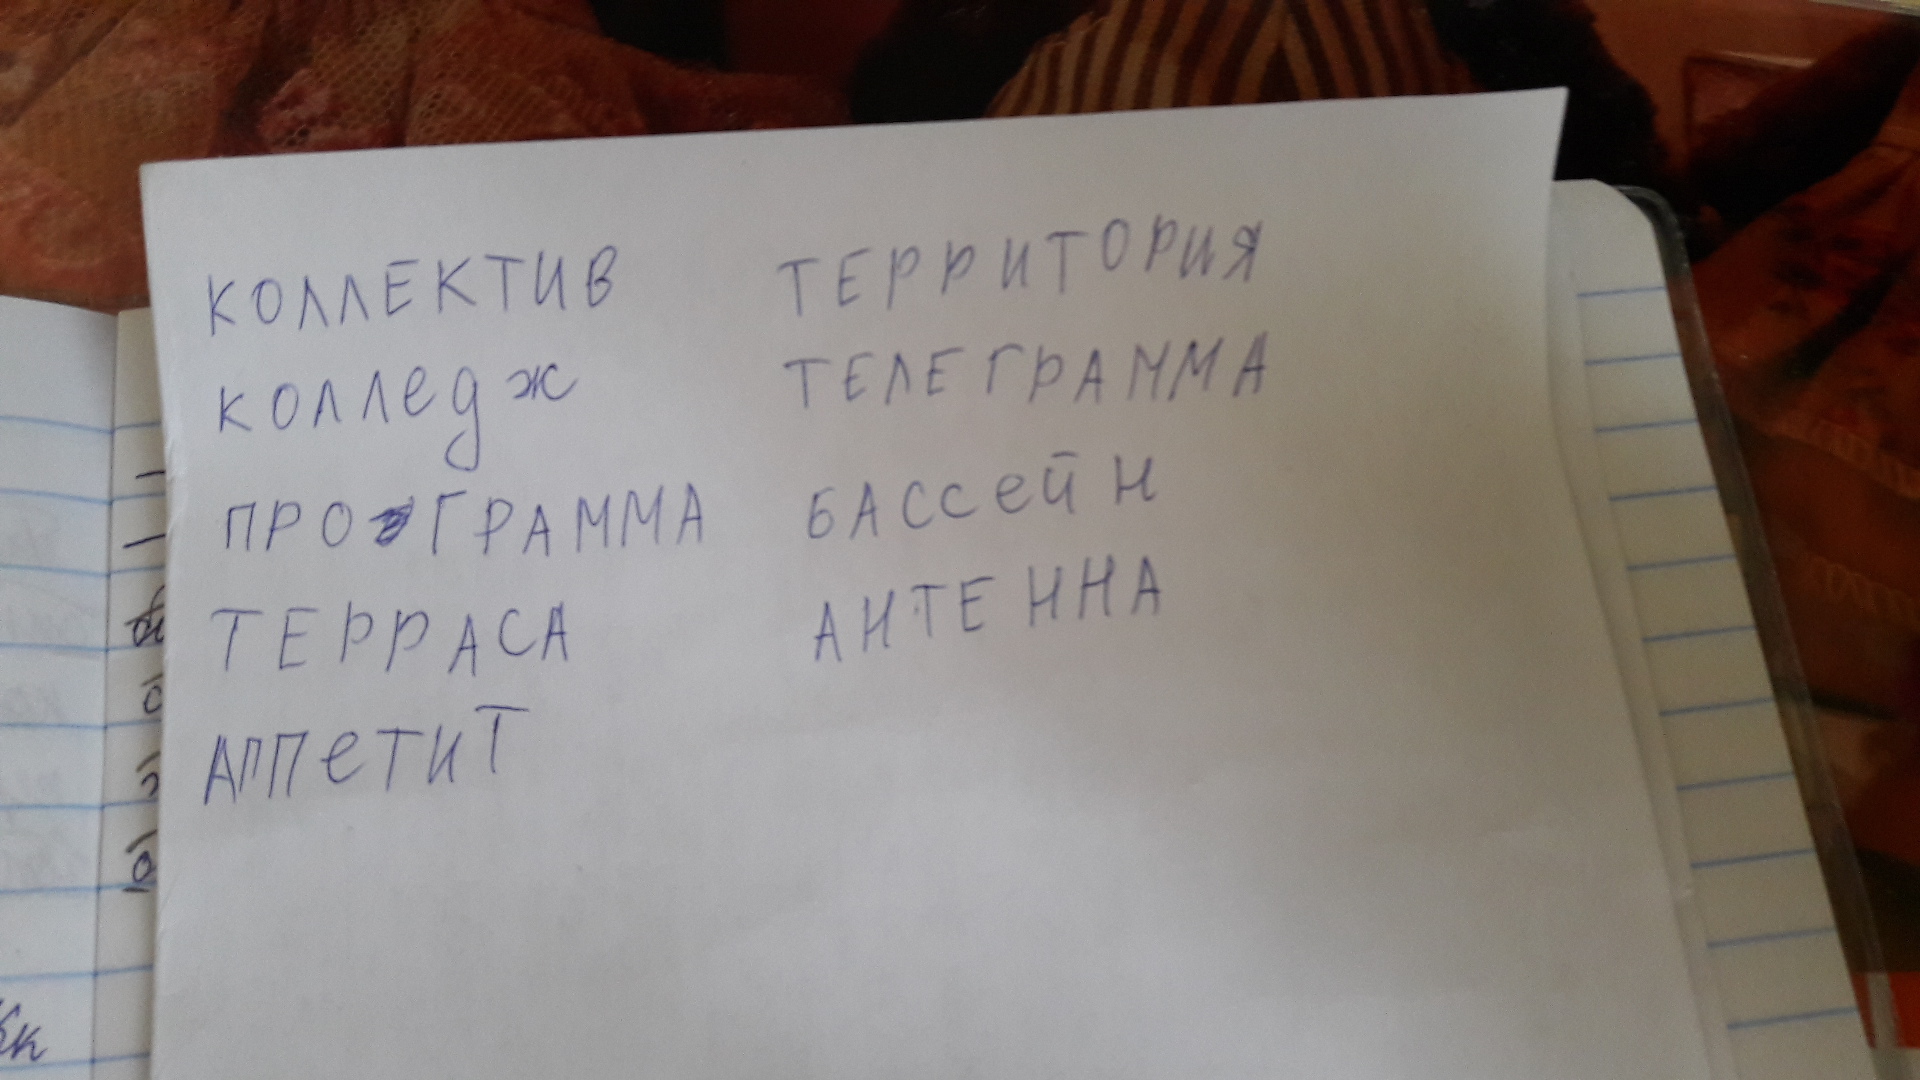 КОЛЛЕКТИВ
колледж
ПРОГРАММА
ТЕРРАСА
АППеТИТ
ТЕРРИТОРИЯ
ТЕЛЕГРАММА
БАССейН
АНТЕННА